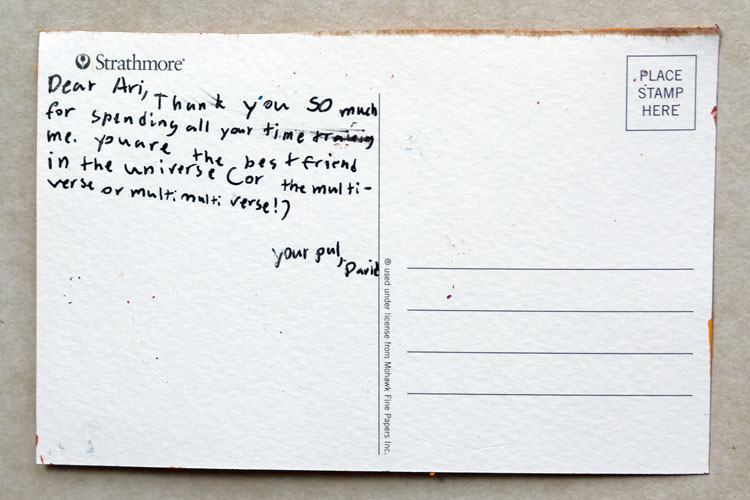 Strathmore®
Dear Ari, Thank you so much
for spending all your time training
me. you are the best friend
in the universe (or the multi-
verse or multi multi verse!)
your pul,
David
PLACE
STAMP
HERE
® used under license from Mohawk Fine Papers Inc.